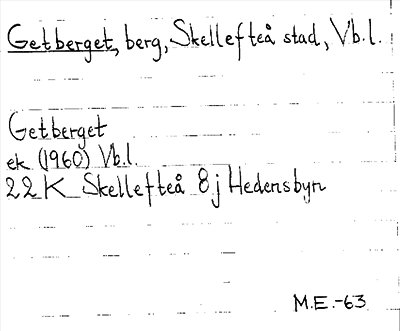 Getberget, berg, Skellefteå stad, Vb.l.
Getberget
ek (1960) Vb.l.
22 K Skellefteå 8 j Hedensbyn
M.E.-63